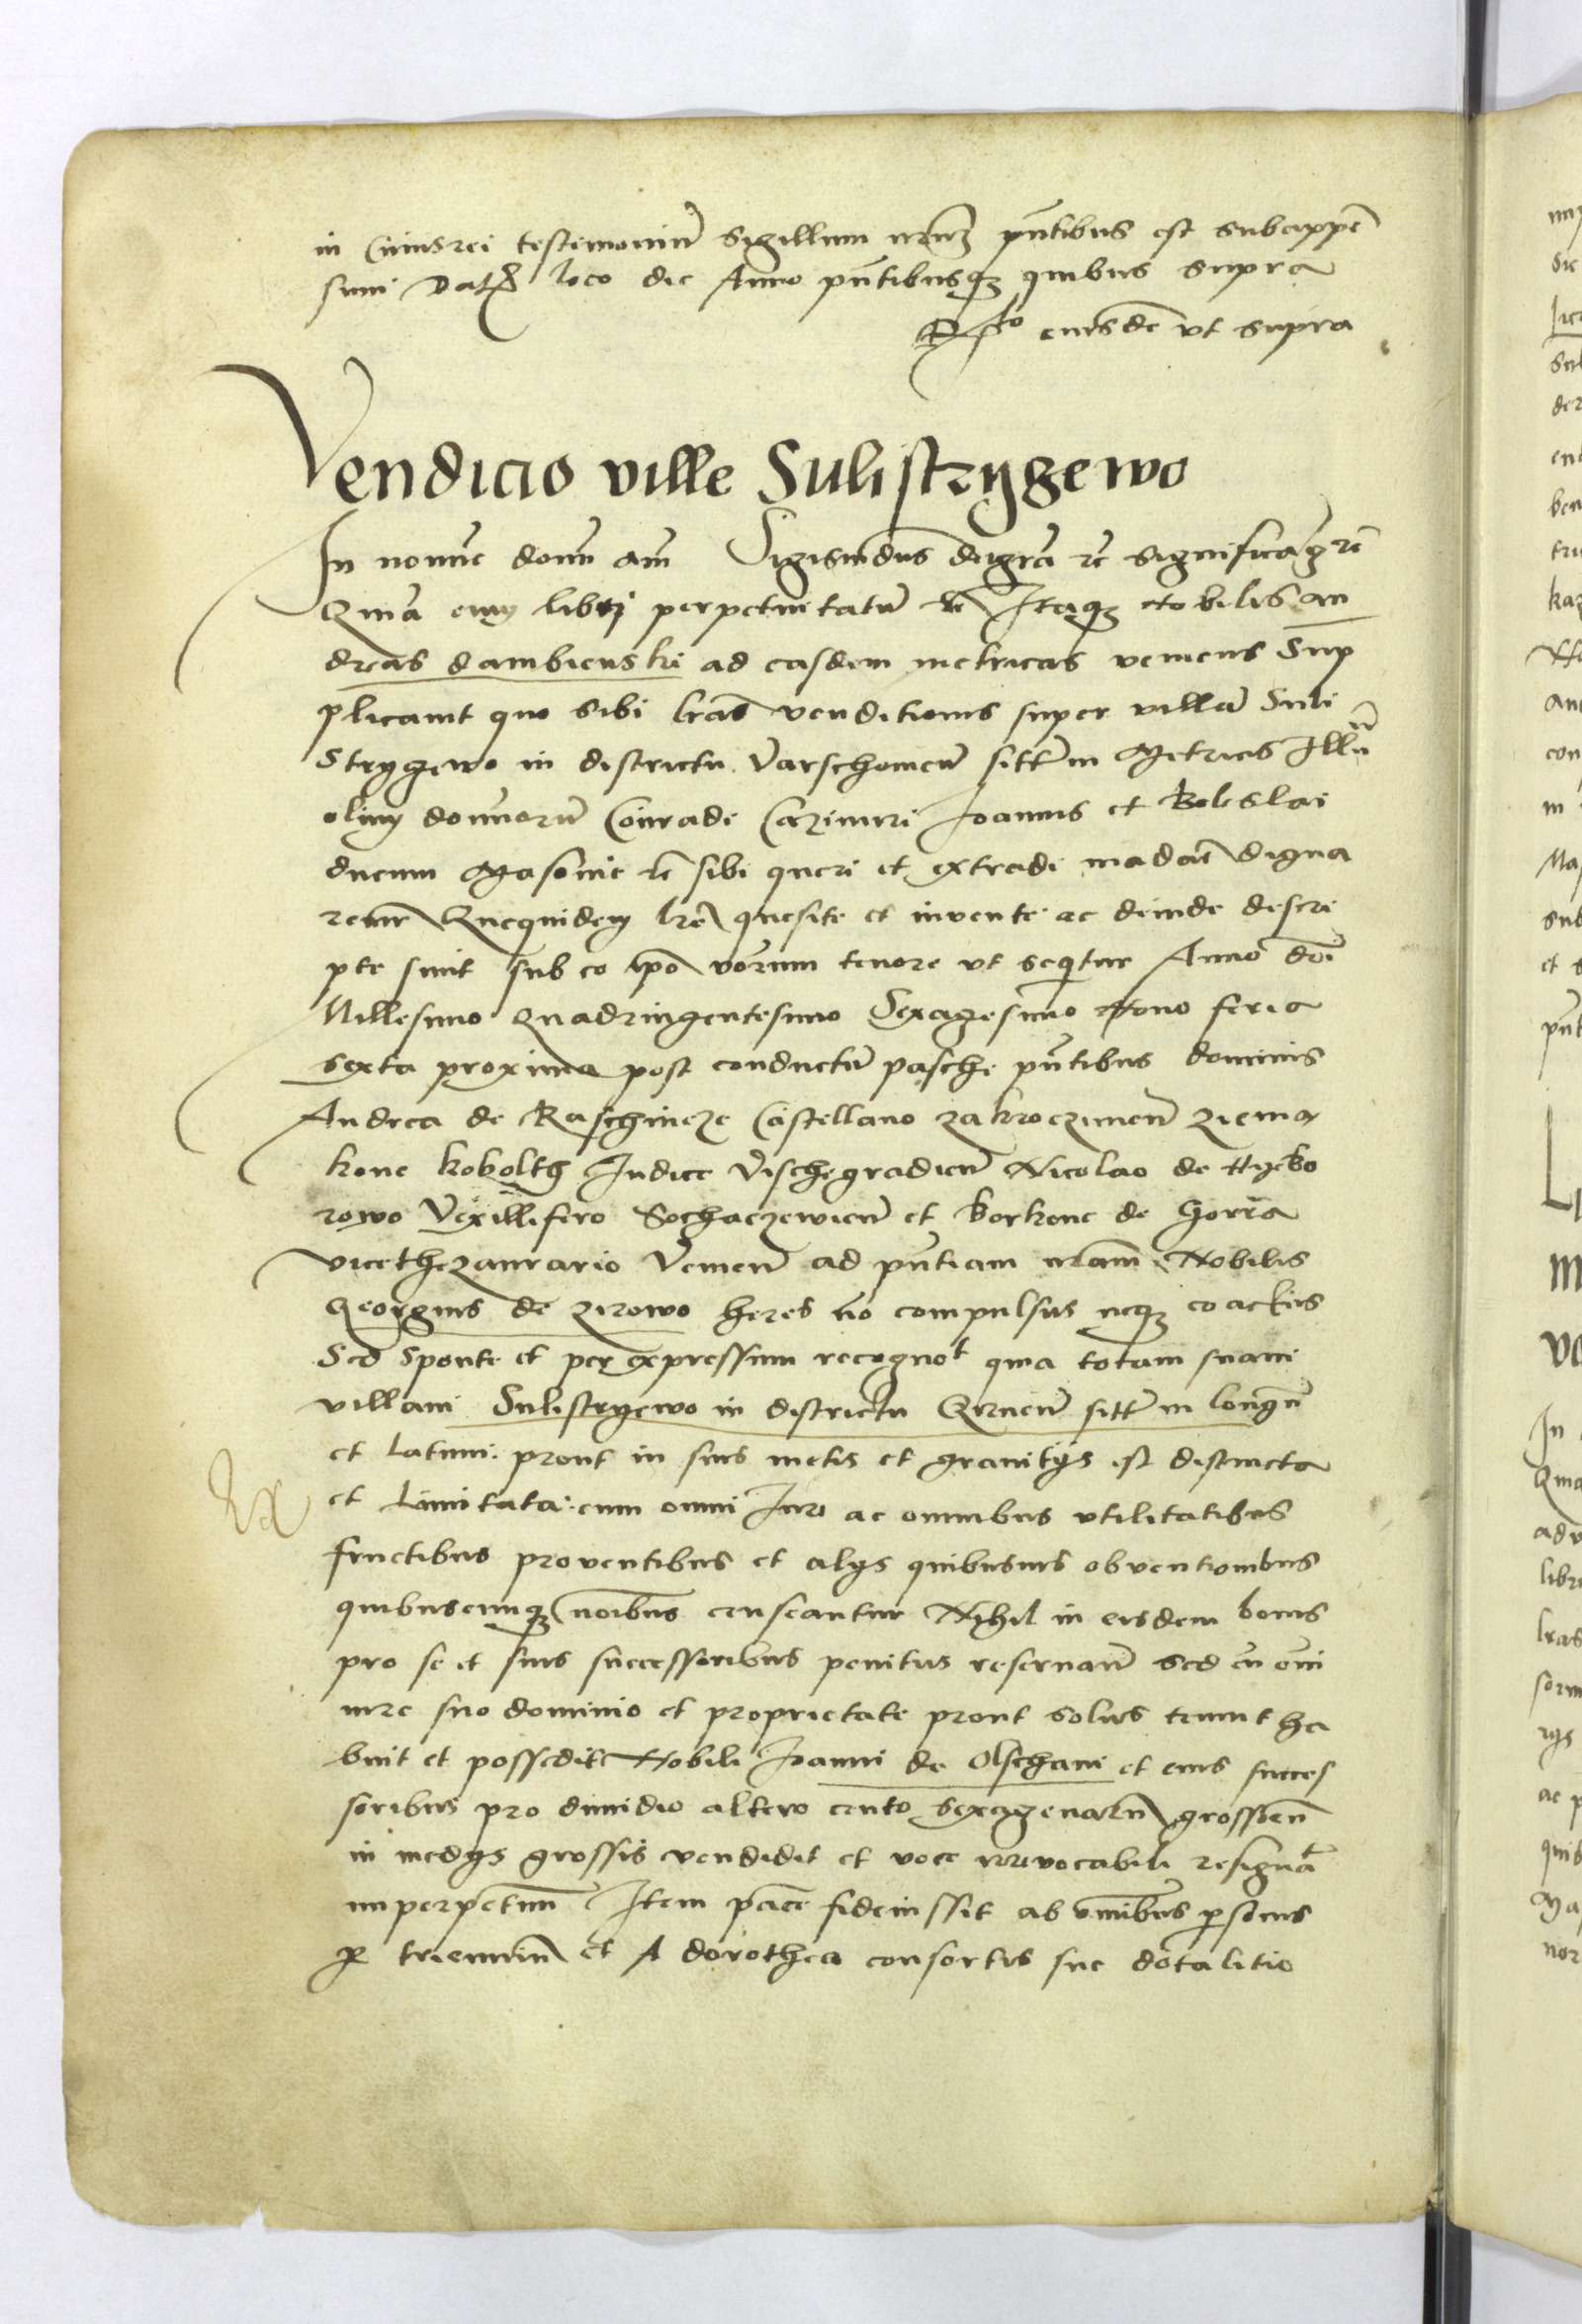 in Cuiusrei testimoniu͂ sigillum nr͂mꝫ pn͂tibus est subappe͂
sum Datꝭ loco die Anno pn͂tibusqꝫ quibus supra
Rᶠᵗᵒ eiusde͂ vt supra
Vendicio ville Sulistrygewo
In no͂ie do͂ni am͂ Sigism͂dus deigr͂a rc͂ significa͂ qꝫ rc͂
Qm͂a eny͂ libri perpetuitatu͂ rc͂ Itaqꝫ Nobilis an
dreas dambienski ad easdem metricas veniens Sup
plicauit quo sibi l͂ras venditionis super villa͂ Suli
Strygewo in districtu Varschouien͂ sitt͂ in Metricis Illu͂
olim do͂inoru͂ Conradi Cazimiri Joannis et Boleslai
ducum Masouie rc͂ sibi queri et extradi ma͂dar͂ digna
remr͂ Quequidem l͂re quesite et inuente ac deinde descri
pte sunt sub eo ip͂o verum tenore vt seqͥtur Anno do͂i
Millesimo Quadringentesimo Sexagesimo Nono feria
sexta proxima post conductu͂ pasche pn͂tibus dominis
Andrea de Raschincze Castellano zakroczimen͂ ziema
kone kobolth Iudice Vischegradien͂ Nicolao de Nyebo
rowo Vexillifero Sochaczewien͂ et borkone de Gorra
vicethezaurario Venien͂ ad pn͂tiam nr͂am Nobilis
Georgius de zirowo heres no͂ compulsus neqꝫ coactus
Sed sponte et per expressum recognoᵗ quia totam suam
villam Sulistrygewo in districtu Grnen͂ sitt͂ in longu͂
et latum prout in suis metis et granitijs est distincta
et Limitata cum omni Iure ac omnibus vtilitatibus
fructibus prouentibus et alijs quibusuis obuentionibus
quibuscunqꝫ no͂ibus censeantur Nihil in eisdem bonis
pro se et suis successoribus penitus reseruan͂ sed cu͂ o͂mi
iure suo dominio et proprietate prout solus tenuit ha
buit et possedit Nobili Joanni de Olschani et eius succes
soribus pro dimidio altero cento sexagenaru͂ grossoru͂
in medijs grossis vendidit et voce irreuocabili resignaᵗ
imperpetuu͂ Item pace fideiussit ab o͂mibus p͂sonis
ꝑ trienniu͂ et A dorothea consortis sue dotalitio